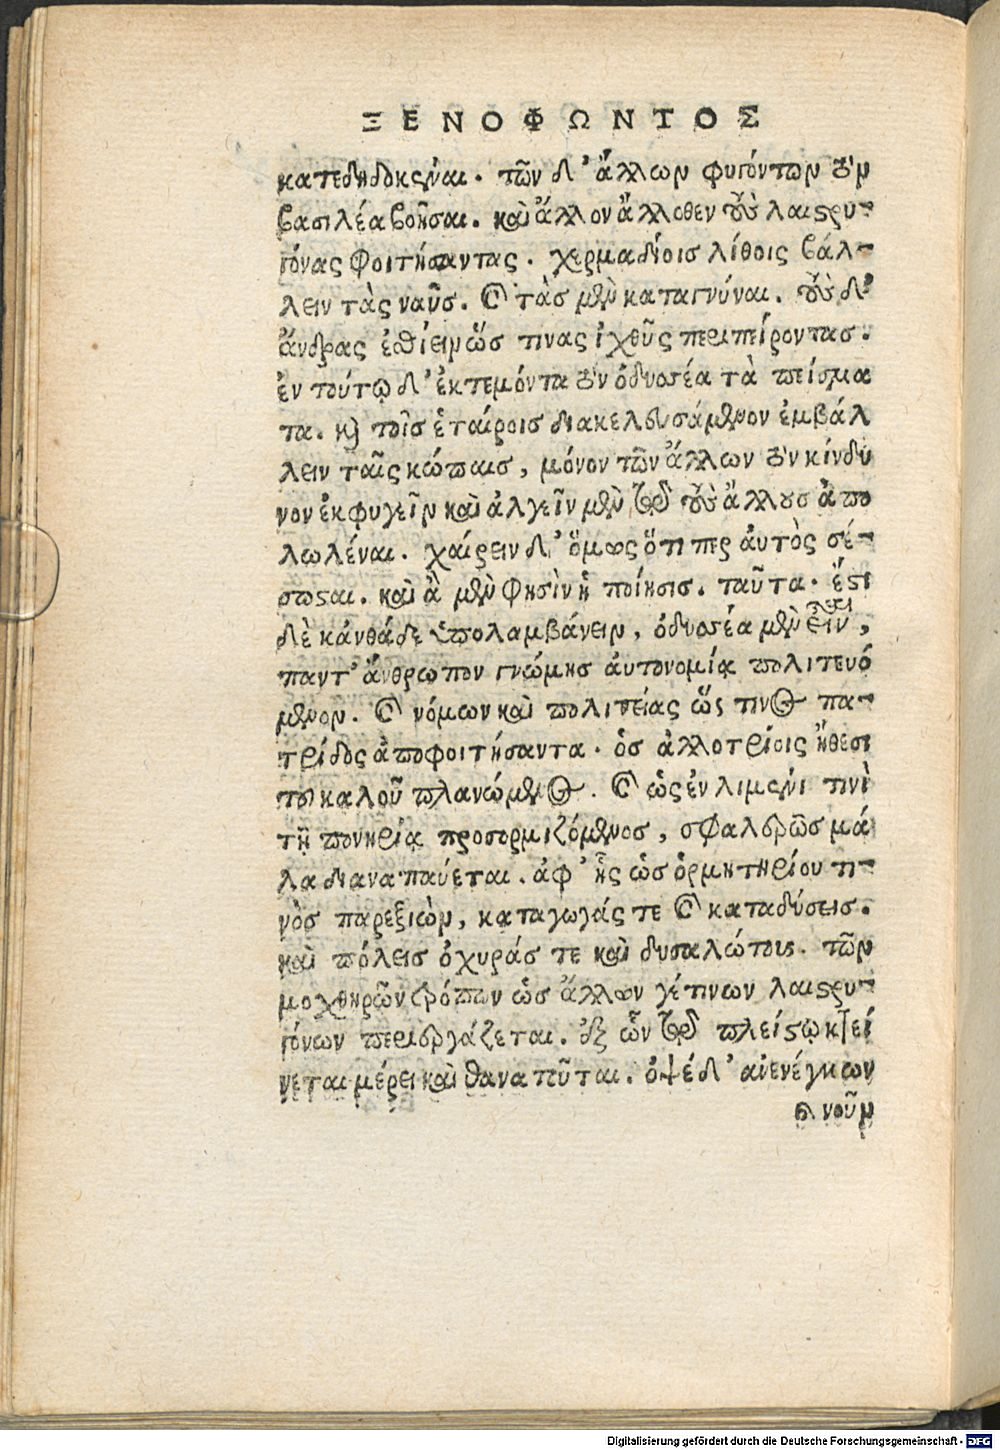 ΞΕΝΟΦΩΝΤΟΣ
κατεδηδοκέναι. τῶν δ' ἄλλων φυγόντων τὸν
βασιλέα βοῆσαι. καὶ ἄλλον ἄλλοθεν τοὺς λαιστρυ-
γόνας φοιτήσαντας. χερμαδίοις λίθοις βάλ-
λειν τὰς ναῦς. καὶ τὰς μὲν καταγνύναι. τοὺς δ'
ἄνδρας ἐσθίειν ὥς τινας ἰχθῦς περιπείροντας.
ἐν τούτῳ δ' ἐκτεμόντα τὸν ὀδυσσέα τὰ πείσμα
τα. καὶ τοῖς ἑταίροις διακελευσάμενον ἐμβάλ
λειν ταῖς κώπαις, μόνον τῶν ἄλλων τὸν κίνδυ
νον ἐκφυγεῖν καὶ ἀλγεῖν μὲν διὰ τοὺς ἄλλους ἀπο
λωλέναι. χαίρειν δ' ὅμως ὅτι περ ἀυτὸς σέ-
σωσται. καὶ ἃ μὲν φησὶν ἡ ποίησις. ταῦτα. ἔστι
δὲ κἀνθάδε ὑπολαμβάνειν, ὀδυσσέα μὲν εἶναι,
παντ' ἄνθρωπον γνώμης ἀυτονομίᾳ πολιτευό
μενον. καὶ νόμων καὶ πολιτείας ὥς τινος πα-
τρίδος ἀποφοιτήσαντα. ὃς ἀλλοτρίοις ἤθεσι
τοῦ καλοῦ πλανώμενος. καὶ ὡς ἐν λιμένι τινὶ
τῇ πονηρίᾳ προσορμιζόμενος, σφαλερῶς μά
λα διαναπαύεται. ἀφ' ἧς ὡς ὁρμητηρίου τι-
νὸς παρεξιὼν, καταγωγάς τε καὶ καταδύσεις.
καὶ πόλεις ὀχυράς τε καὶ δυσαλώτους. τῶν
μοχθηρῶν τρόπων ὡς ἄλλων γέ τινων λαιστρυ-
γόνων περιεργάζεται. ἐξ ὧν διὰ πλείστῳ κτεί
νεται μέρει καὶ θανατοῦται. ὀψέ δ' ἀνενέγκων
νοῦν